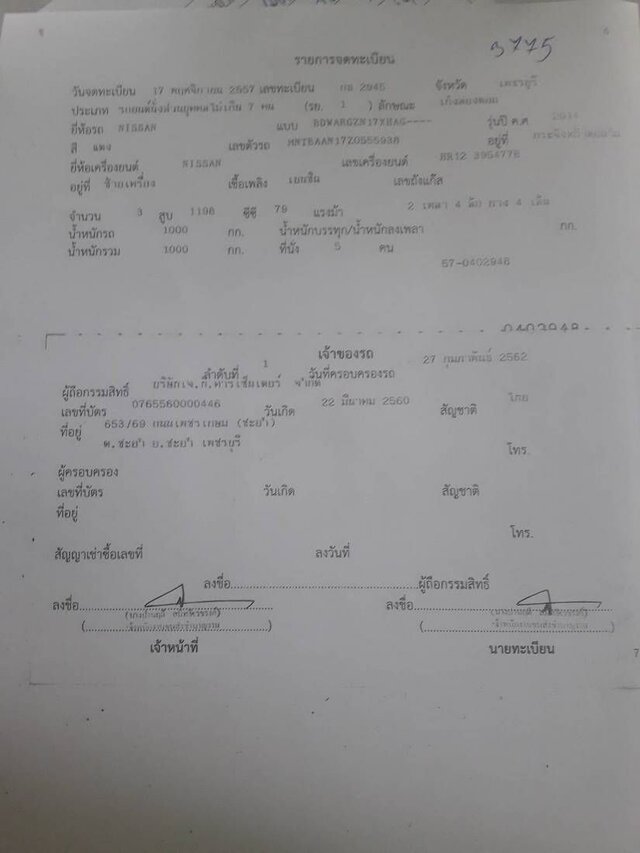 3775
รายการจดทะเบียน
วันจดทะเบียน 17 พฤศจิกายน 2557 เลขทะเบียน กธ 2945 จังหวัด เพชรบุรี
ประเภท รถยนต์นั่งส่วนบุคคลไม่เกิน 7 คน (รย. 1 ) ลักษณะ เก๋งสองตอน
ยี่ห้อรถ NISSAN แบบ BDWARGZN17XHAG---- รุ่นปี ค.ศ 2014
สี แดง เลขตัวรถ MNTBAAN17Z0555938 อยู่ที่
ยี่ห้อเครื่องยนต์ NISSAN เลขเครื่องยนต์ HR12 395477B
อยู่ที่ ซ้ายเครื่อง เชื้อเพลิง เบนซิน เลขถังแก๊ส
จำนวน 3 สูบ 1198 ซีซี 79 แรงม้า 2 เพลา 4 ล้อ ยาง 4 เส้น
น้ำหนักรถ 1000 กก. น้ำหนักบรรทุก/น้ำหนักลงเพลา กก.
น้ำหนักรวม 1000 กก. ที่นั่ง 5 คน
57-0402948
0402948
เจ้าของรถ
ลำดับที่ 1 วันที่ครอบครองรถ 27 กุมภาพันธ์ 2562
ผู้ถือกรรมสิทธิ์ บริษัทเจ.ก.คาร์เซ็นเตอร์ จำกัด
เลขที่บัตร 0765560000446 วันเกิด 22 มีนาคม 2560 สัญชาติ ไทย
ที่อยู่ 653/69 ถนนเพชรเกษม (ชะอำ)
ต.ชะอำ อ.ชะอำ เพชรบุรี โทร.
ผู้ครอบครอง
เลขที่บัตร วันเกิด สัญชาติ
ที่อยู่
โทร.
สัญญาเช่าซื้อเลขที่ ลงวันที่
ลงชื่อ ผู้ถือกรรมสิทธิ์
ลงชื่อ ลงชื่อ
เจ้าหน้าที่ นายทะเบียน
7